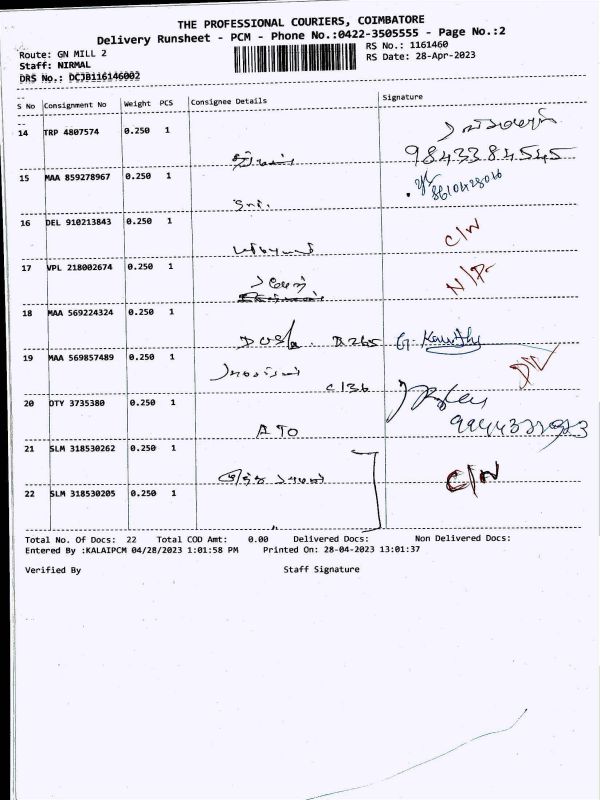 THE PROFESSIONAL COURIERS, COIMBATORE
Delivery Runsheet - PCM - Phone No.:0422-3505555 - Page No.:2
Route: GN MILL 2
RS No.: 1161460
Staff: NIRMAL
RS Date: 28-Apr-2023
DRS No.: DCJB116146002
S No Consignment No Weight PCS Consignee Details Signature
14 TRP 4807574 0.250 1
9843384545
15 MAA 859278967 0.250 1
8610428016
16 DEL 910213843 0.250 1
C/N
17 VPL 218002674 0.250 1
18 MAA 569224324 0.250 1
D 265
19 MAA 569857489 0.250 1
C 136
20 DTY 3735380 0.250 1
ATO
21 SLM 318530262 0.250 1
C/N
22 SLM 318530205 0.250 1
"
Total No. Of Docs: 22 Total COD Amt: 0.00 Delivered Docs: Non Delivered Docs:
Entered By :KALAIPCM 04/28/2023 1:01:58 PM Printed On: 28-04-2023 13:01:37
Verified By Staff Signature